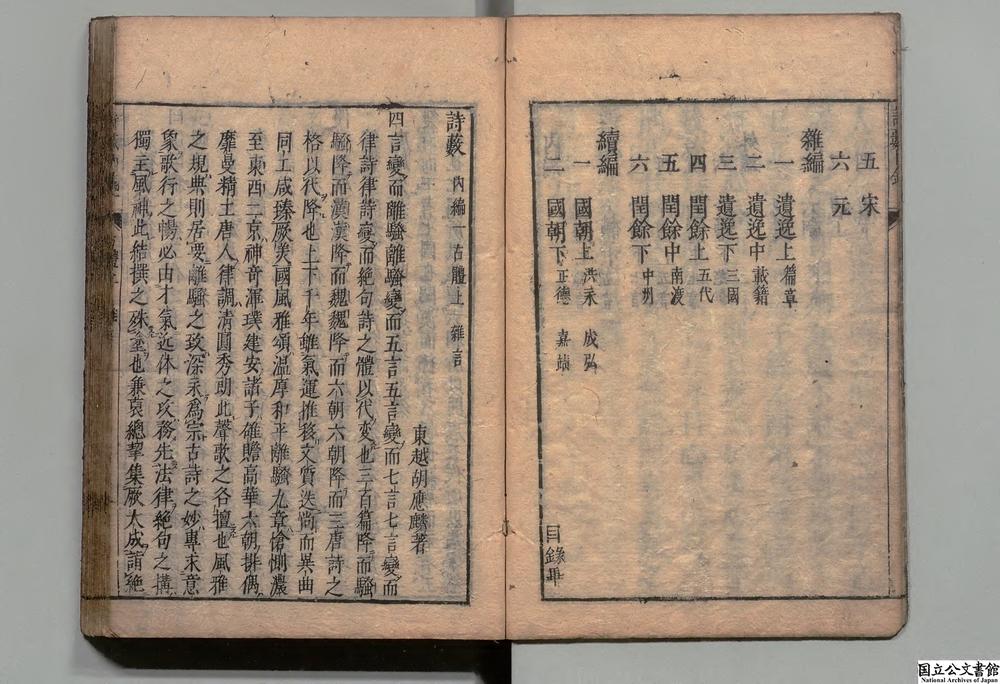 五 宋
六 元
雜編
一 遺逸上 篇章
二 遺逸中 載籍
三 遺逸下 三國
四 閏餘上 五代
五 閏餘中 南渡
六 閏餘下 中州
續編
一 國朝上 洪永 成弘
二 國朝下 正德 嘉靖
目錄畢
詩藪 內編一 古體上 雜言
東越胡應麟著
四言變而離騷離騷變而五言五言變而七言七言變而
律詩律詩變而絕句詩之體以代變也三百篇降而騷
騷降而漢漢降而魏魏降而六朝六朝降而三唐詩之
格以代降也上下千年雖氣運推移文質迭尚而異曲
同工咸臻厥美國風雅頌温厚和平離騷九章愴惻濃
至東西二京神奇渾璞建安諸子雄贍高華六朝排偶
靡曼精工唐人律調清圓秀朗此聲歌之各擅也風雅
之規典則居要離騷之致深永爲宗古詩之妙專求意
象歌行之暢必由才氣近体之攻務先法律絕句之搆
獨主風神此結撰之殊塗也兼裒總挈集厥大成詣絕
国立公文書館
National Archives of Japan